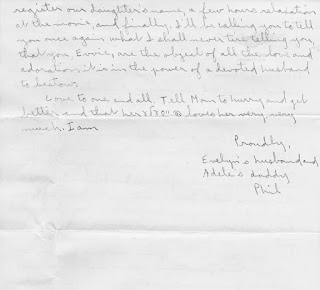 register our daughter's name, a few hours relaxation
at the movie, and finally, I'll be calling you to tell
you once again what I shall never tire telling you,
that you, Evvie, are the object of all the love and
adoration it is in the power of a devoted husband
to bestow.
Love to one and all. Tell Mom to hurry and get
better and that her loves her very, very
much. I am
Proudly,
Evelyn's husband and
Adele's daddy
Phil